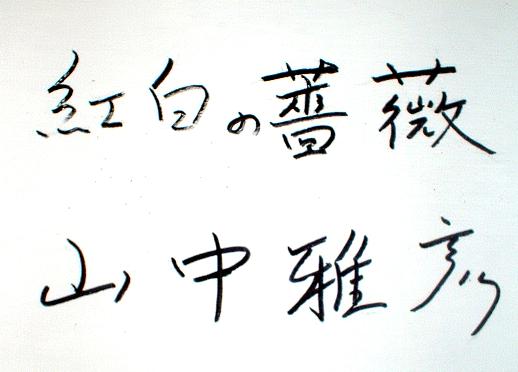 紅白の薔薇
山中雅彦